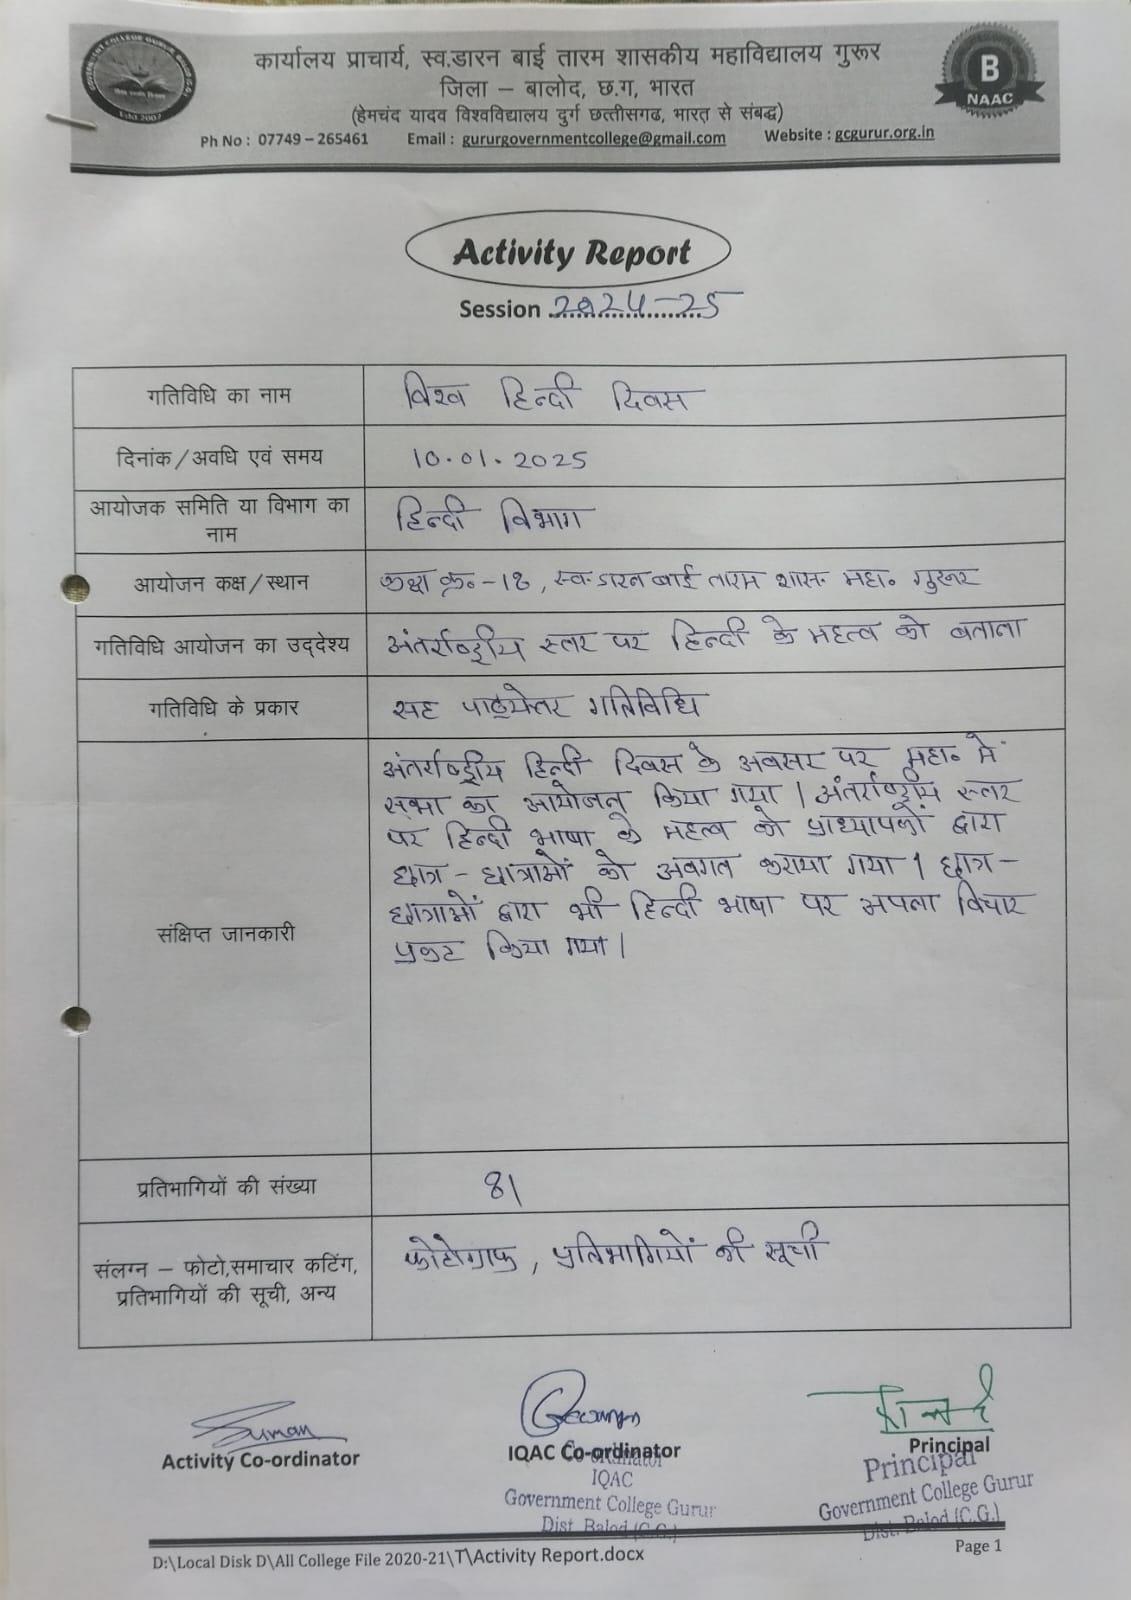 कार्यालय प्राचार्य, स्व.डारन बाई तारम शासकीय महाविद्यालय गुरूर
जिला – बालोद, छ.ग, भारत
(हेमचंद यादव विश्वविद्यालय दुर्ग छत्तीसगढ, भारत से संबद्ध)
Ph No : 07749 – 265461 Email : gururgovernmentcollege@gmail.com Website : gcgurur.org.in
B
NAAC
Estd 2007
Activity Report
Session 2024-25
गतिविधि का नाम
विश्व हिन्दी दिवस
दिनांक/अवधि एवं समय
10.01.2025
आयोजक समिति या विभाग का
नाम
हिन्दी विभाग
आयोजन कक्ष/स्थान
कक्ष क्र०-18, स्व. डारन बाई तारम शास. महा० गुरूर
गतिविधि आयोजन का उद्देश्य
अंतर्राष्ट्रीय स्तर पर हिन्दी के महत्व को बताना
गतिविधि के प्रकार
सह पाठ्येत्तर गतिविधि
संक्षिप्त जानकारी
अंतर्राष्ट्रीय हिन्दी दिवस के अवसर पर महा० में
सभा का आयोजन किया गया। अंतर्राष्ट्रीय स्तर
पर हिन्दी भाषा के महत्व को प्राध्यापकों द्वारा
छात्र - छात्राओं को अवगत कराया गया। छात्र-
छात्राओं द्वारा भी हिन्दी भाषा पर अपना विचार
प्रकट किया गया।
प्रतिभागियों की संख्या
81
संलग्न – फोटो,समाचार कटिंग,
प्रतिभागियों की सूची, अन्य
फोटोग्राफ, प्रतिभागियों की सूची
Suman
Activity Co-ordinator
IQAC Co-ordinator
IQAC
Government College Gurur
Dist. Balod (C.G.)
Principal
Principal
Government College Gurur
Dist. Balod (C.G.)
D:\Local Disk D\All College File 2020-21\T\Activity Report.docx
Page 1